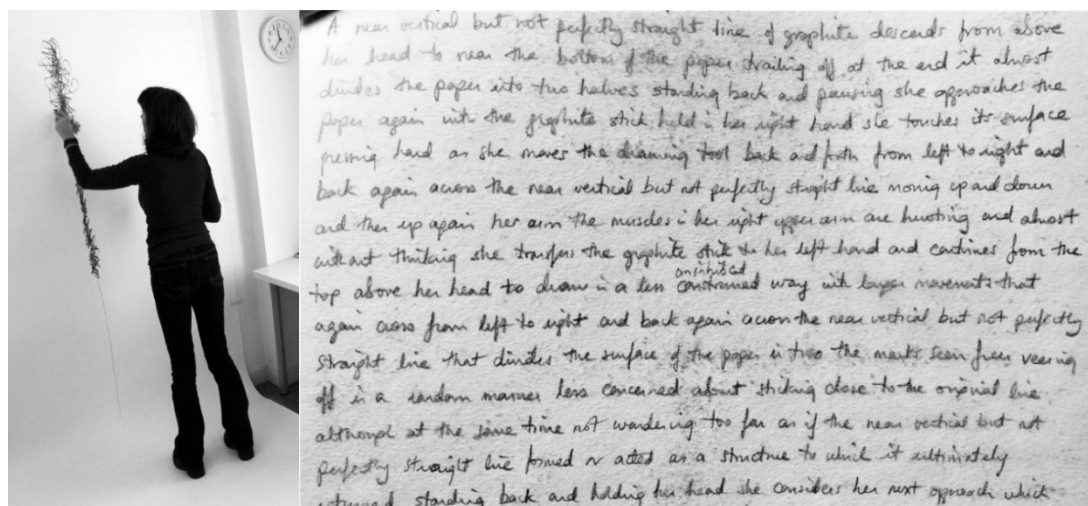 A near vertical but not perfectly straight line of graphite descends from above
her head to near the bottom of the paper trailing off at the end it almost
divides the paper into two halves standing back and pausing she approaches the
paper again with the graphite stick held in her right hand she touches its surface
pressing hard as she moves the drawing tool back and forth from left to right and
back again across the near vertical but not perfectly straight line moving up and down
and then up again her arm the muscles in her right upper arm are hurting and almost
without thinking she transfers the graphite stick to her left hand and continues from the
uninhibited
top above her head to draw in a less constrained way with larger movements that
again cross from left to right and back again across the near vertical but not perfectly
straight line that divides the surface of the paper in two the marks seem freer veering
off in a random manner less concerned about sticking close to the original line
although at the same time not wandering too far as if the near vertical but not
perfectly straight line formed or acted as a structure to which it ultimately
returned standing back and holding her head she considers her next approach which